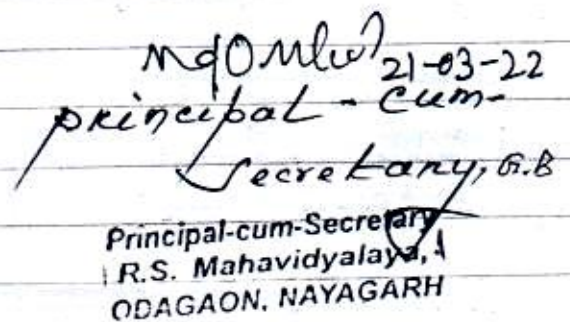 21-03-22
principal - cum-
Secretary, G.B
Principal-cum-Secretary
R.S. Mahavidyalaya,
ODAGAON, NAYAGARH